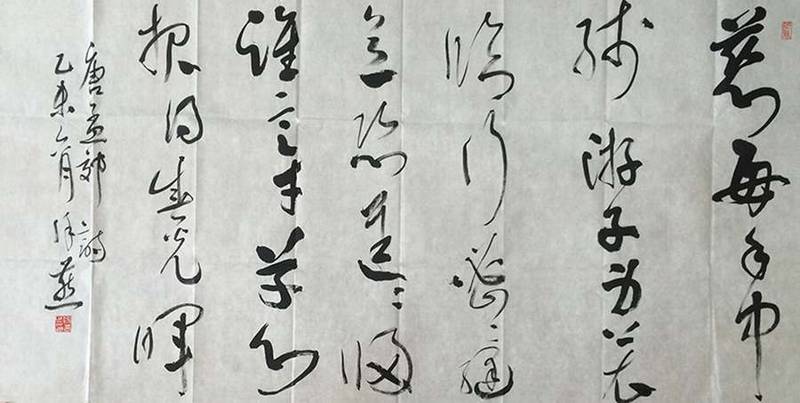 慈母手中
线游子身上衣
临行密密缝
意恐迟迟归
谁言寸草心
报得三春晖
唐孟郊诗
乙未六月